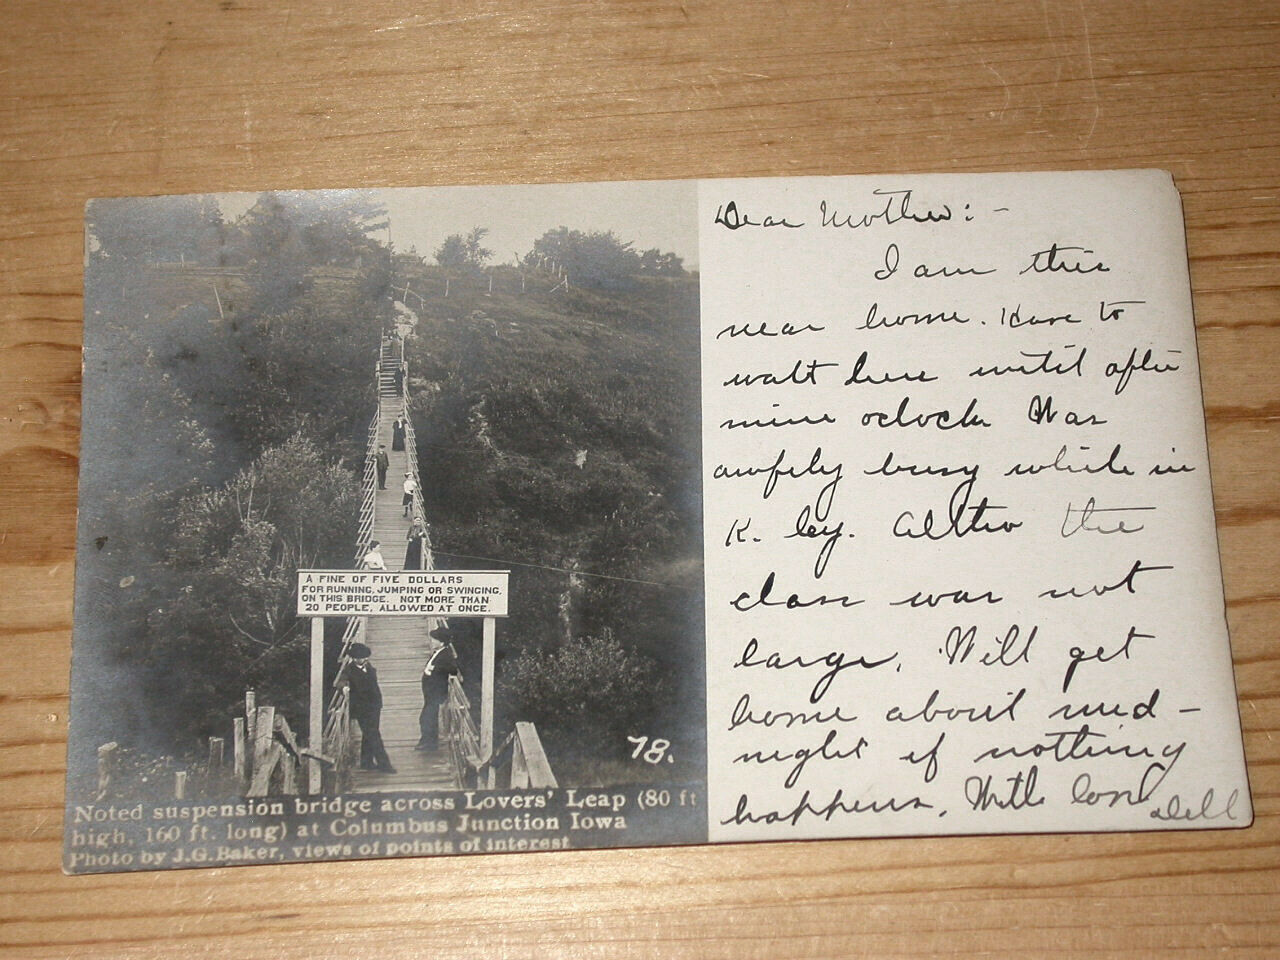 A FINE OF FIVE DOLLARS
FOR RUNNING, JUMPING OR SWINGING,
ON THIS BRIDGE. NOT MORE THAN
20 PEOPLE, ALLOWED AT ONCE.
78.
Noted suspension bridge across Lovers' Leap (80 ft
high, 160 ft. long) at Columbus Junction Iowa
Photo by J.G. Baker, views of points of interest
Dear Mother: -
I am this
near home. Have to
wait here until after
nine oclock. Was
awfuly busy while in
K. Cy. Altho the
class was not
large. Will get
home about mid-
night if nothing
happens. With love
Dell